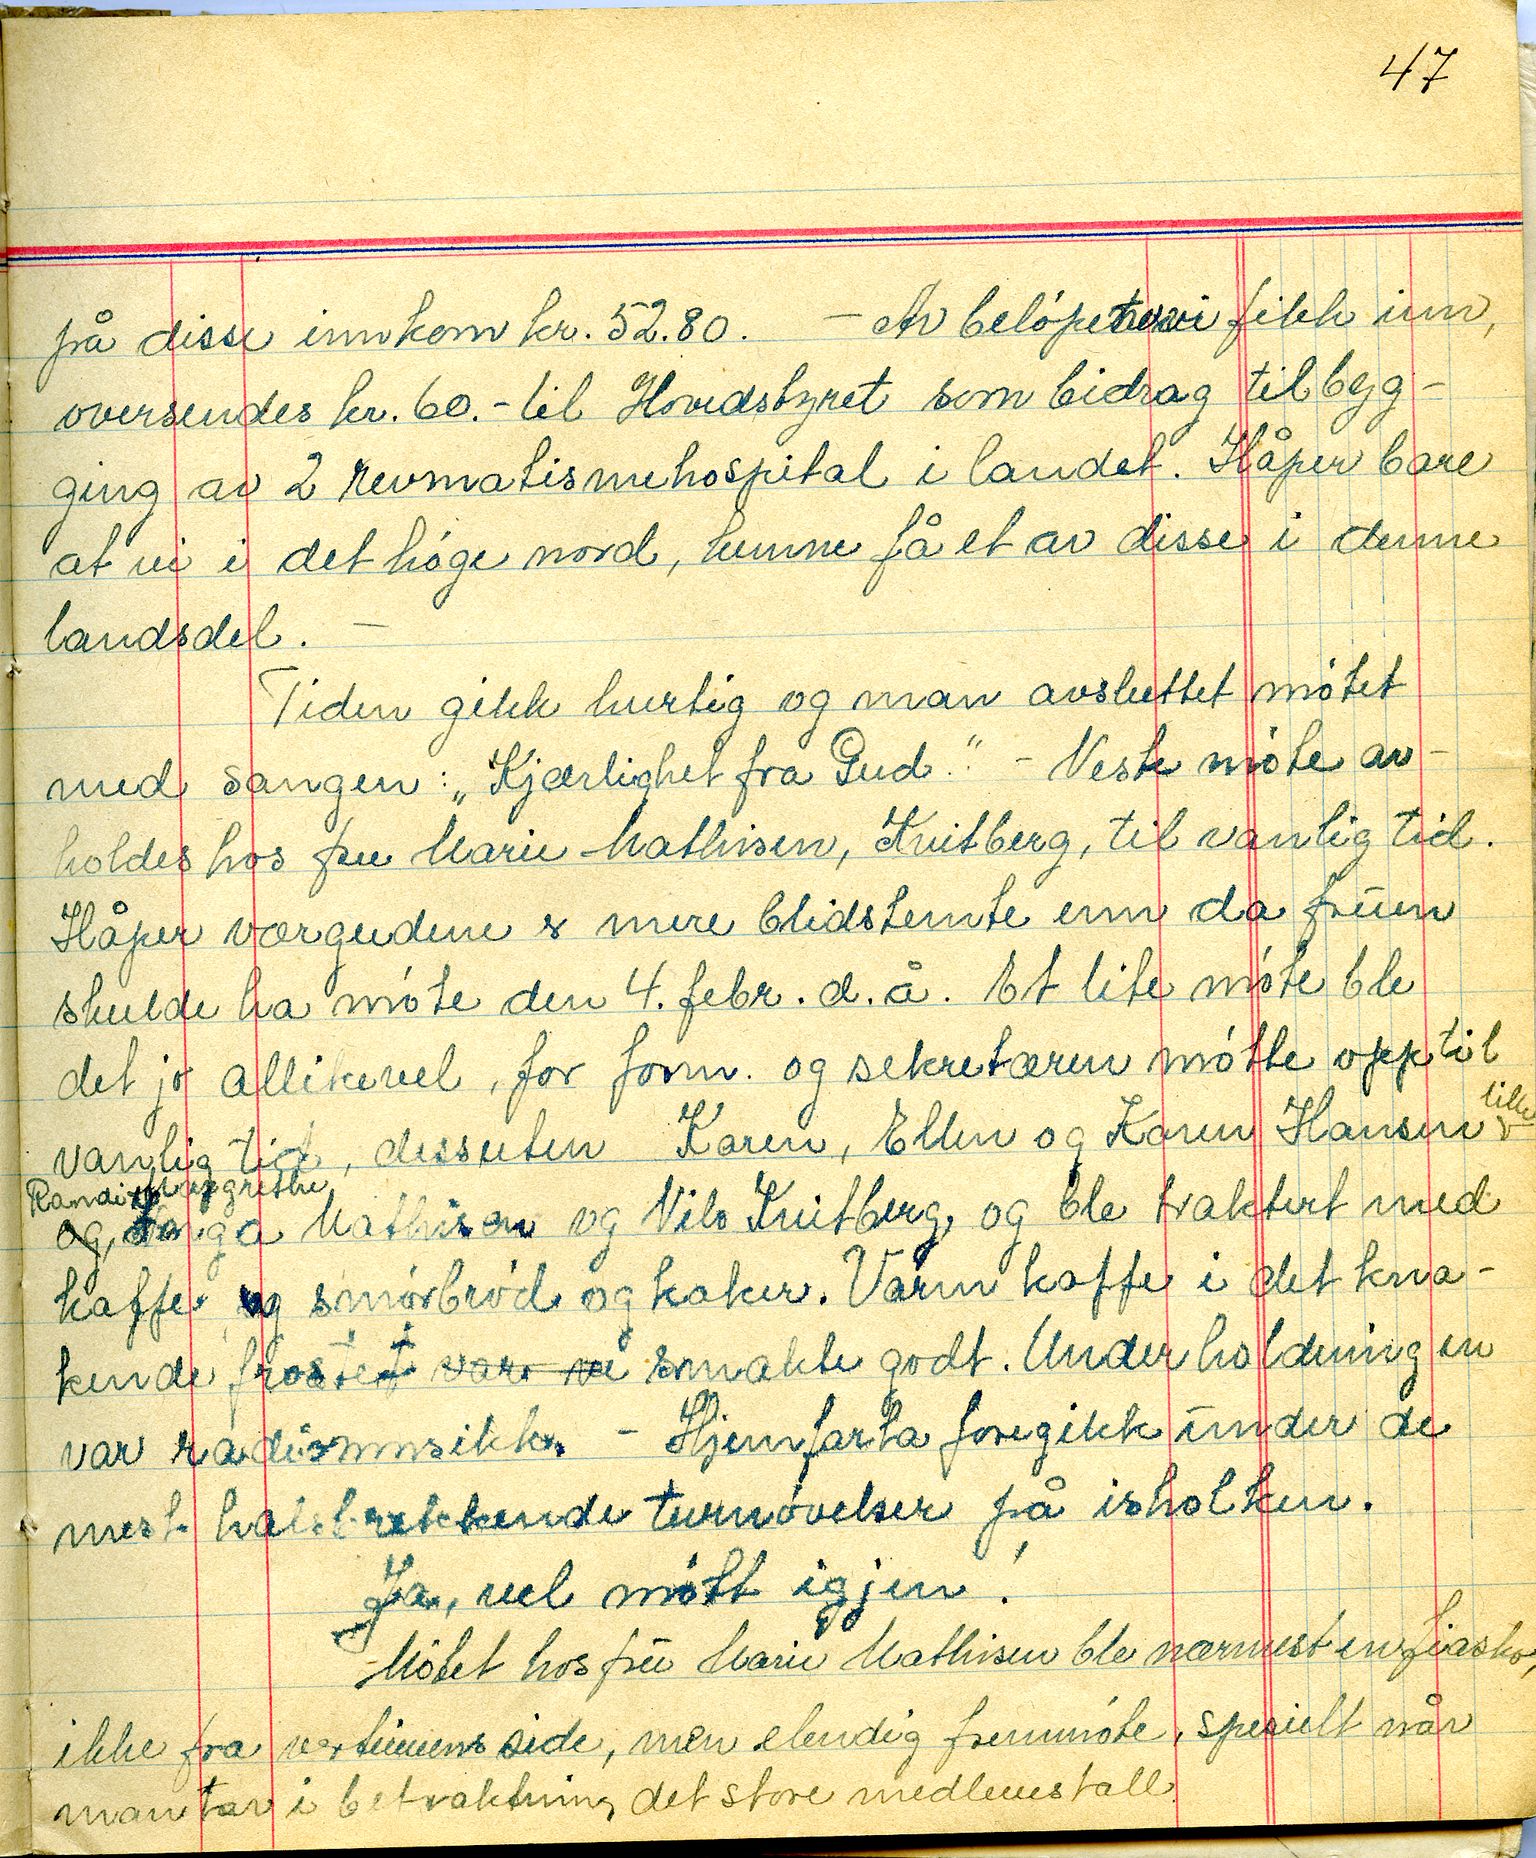 47
på disse innkom kr. 52.80. – Av beløpet vi fikk inn,
oversendes kr. 60.- til Hovedstyret som bidrag til byg-
ging av 2 revmatismehospital i landet. Håper bare
at vi i det høge nord, kunne få et av disse i denne
landsdel. –
Tiden gikk hurtig og man avsluttet møtet
med sangen: „Kjærlighet fra Gud." – Neste møte av-
holdes hos fru Marie Mathisen, Kvitberg, til vanlig tid.
Håper værgudene er mere blidstemte enn da fruen
skulde ha møte den 4. febr. d.å. Et lite møte ble
det jo allikevel, for form. og sekretæren møtte opp til
lille
vanlig tid, dessuten Karen, Ellen og Karen Hansen
Randi Margrethe
og, Inga Mathisen og Nils Kvitberg, og ble traktert med
kaffe og smørbrød og kaker. Varm kaffe i det kna-
kende frostet var ve smakte godt. Underholdningen
var radiomusikk. – Hjemfarta foregikk under de
mest halsbrekkende turnøvelser på isholken.
Ja, vel møtt igjen!
Møtet hos fru Marie Mathisen ble nærmest en fiasko,
ikke fra vertinnens side, men elendig fremmøte, spesielt når
man tar i betraktning det store medlemstall.